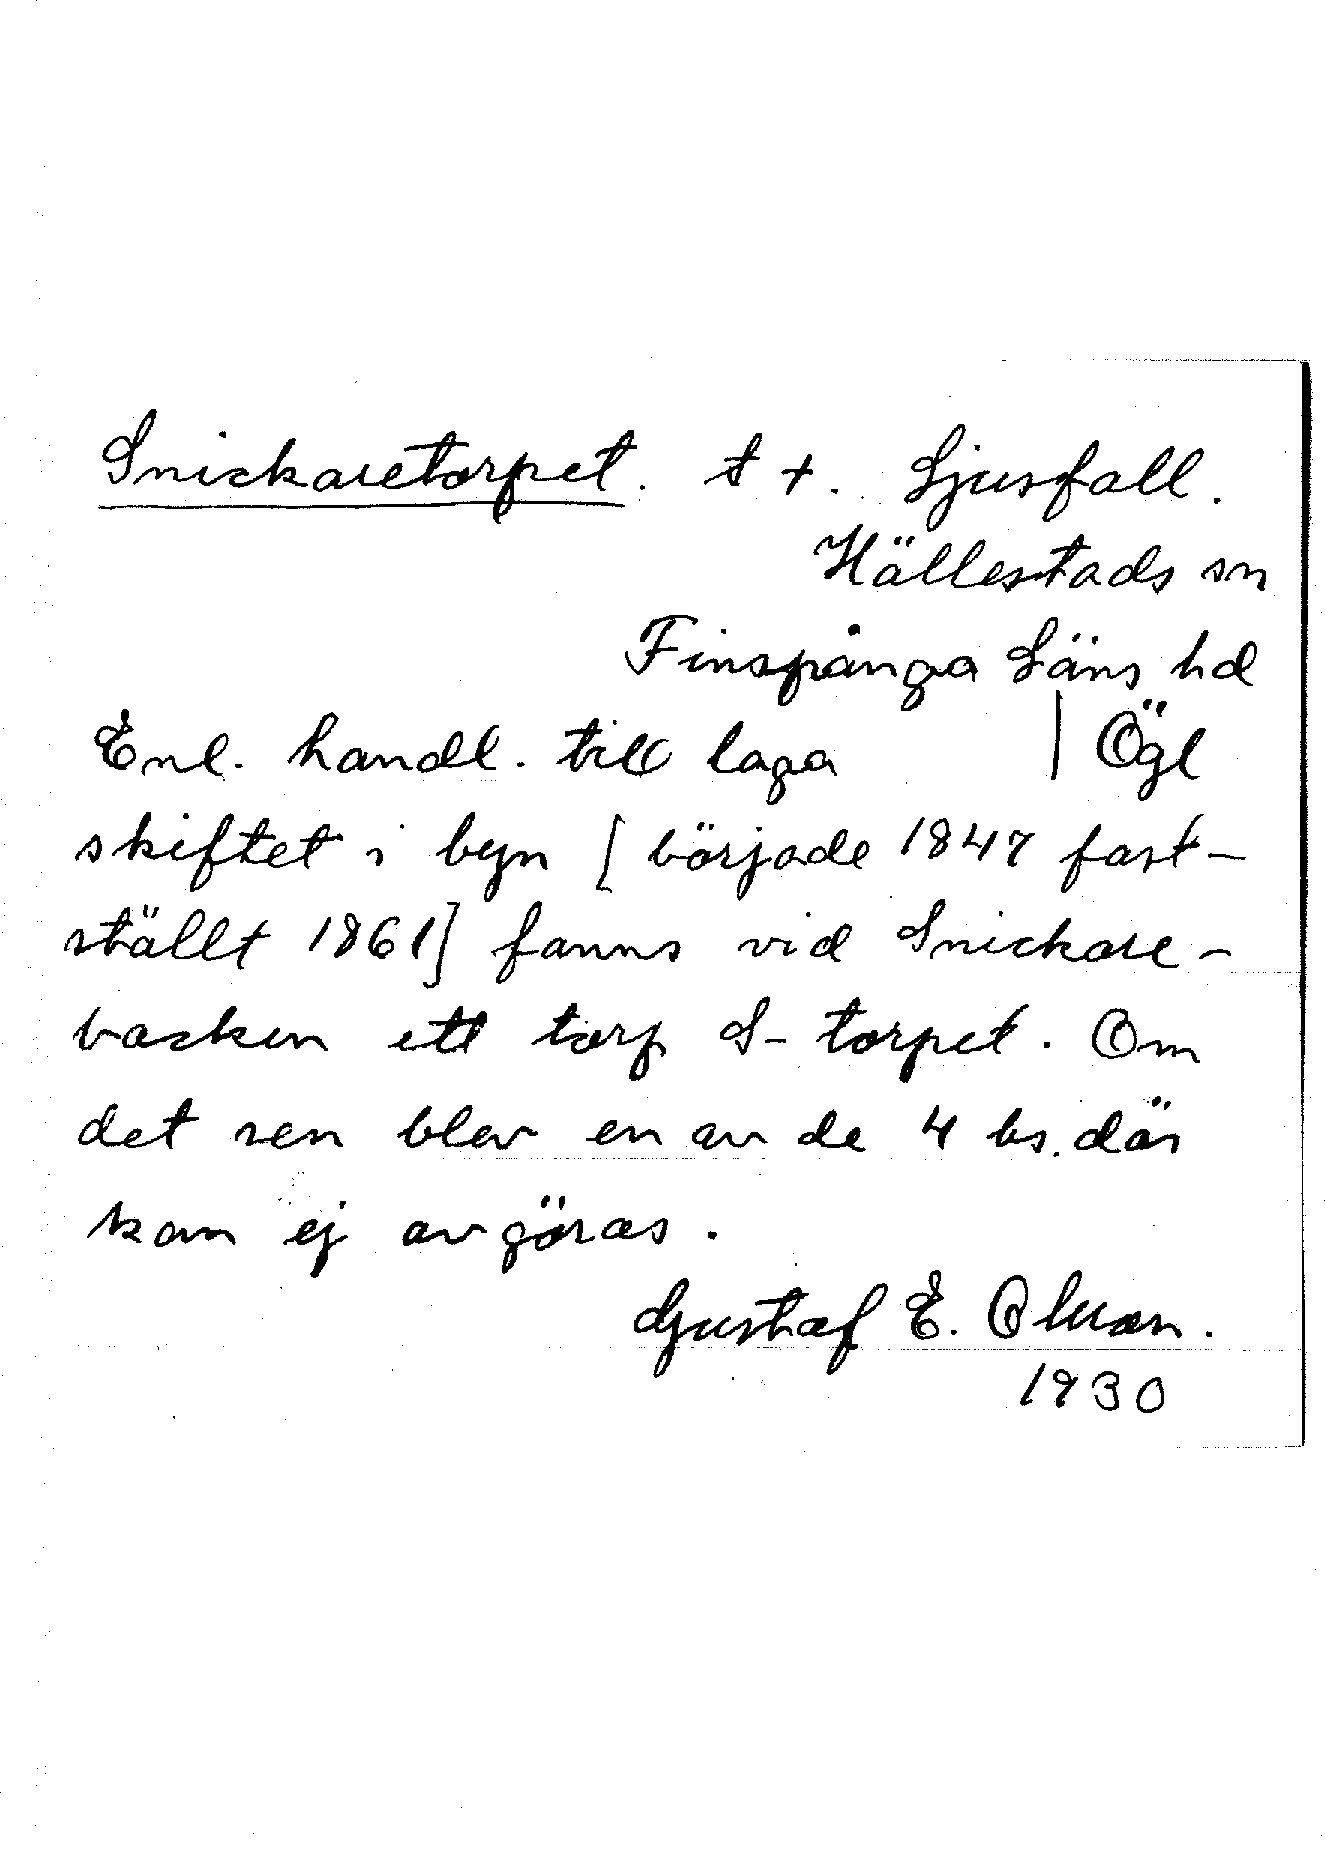 Snickaretorpet. t +. Ljusfall.
Hällestads sn
Finspånga Läns hd
Enl. handl. till laga | Ögl
skiftet i byn [började 1847 fast-
ställt 1861] fanns vid Snickare-
backen ett torp S-torpet. Om
det sen blev en av de 4 bs. där
kan ej avgöras.
Gustaf E. Olsson.
1930